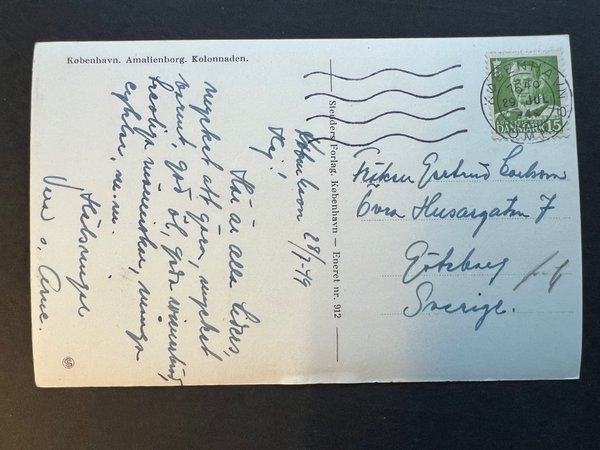 København. Amalienborg. Kolonnaden.
Köbenhavn 28/7-49
Hej!
Här är alla tiders,
mycket att göra, mycket
varmt, god öl, goda wienerbröd,
trevliga människor, många
cyklar, m.m.
Hälsningar
Arne.
Stenders Forlag, København — Eneret nr. 912
KØBENHAVN
29 JUL
DANMARK 15
Fröken Gertrud Carlsson
Övra Husargatan 7
Göteborg
Sverige.